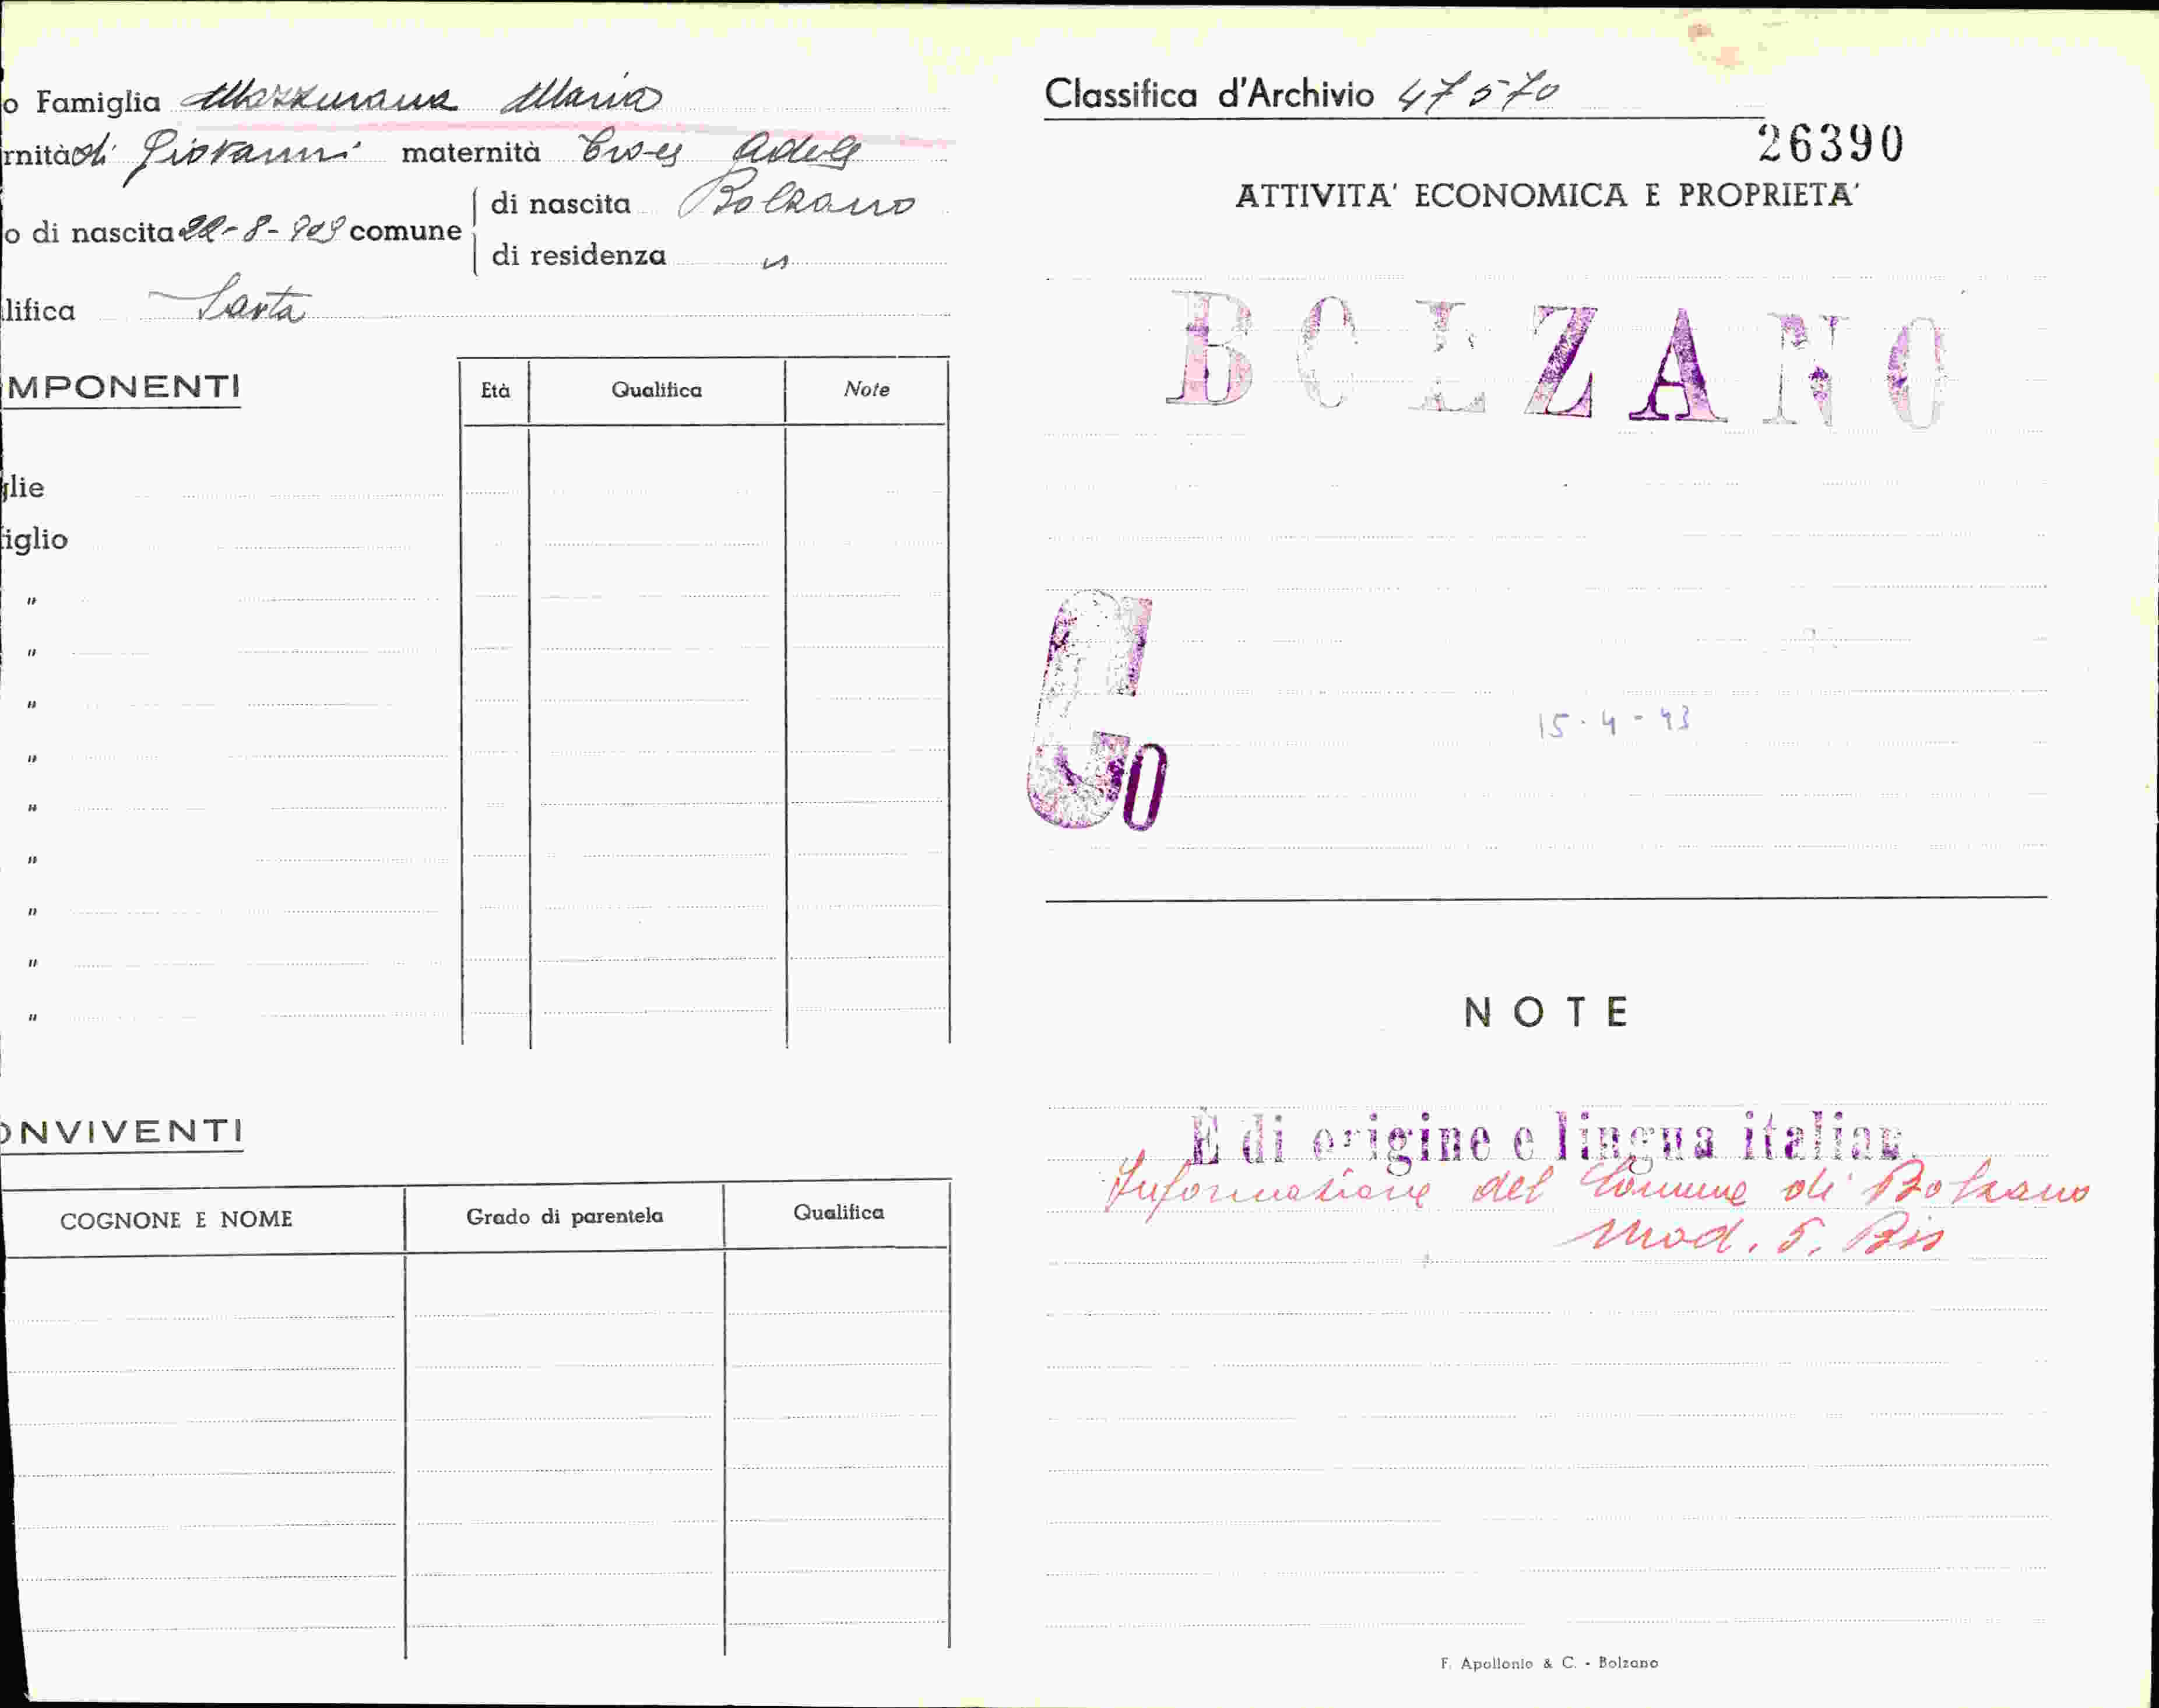 o Famiglia Mazzurana Maria
rnità di Giovanni maternità Adele
di nascita Bolzano
o di nascita 22-8-909 comune
di residenza "
lifica Sarta
MPONENTI
Età Qualifica Note
glie
figlio
"
"
"
"
"
"
"
"
"
ONVIVENTI
COGNONE E NOME Grado di parentela Qualifica
Classifica d'Archivio 47570
26390
ATTIVITA' ECONOMICA E PROPRIETA'
BOLZANO
15-4-43
NOTE
È di origine e lingua italian
Informazione del Comune di Bolzano
Mod. 5. Bis
F. Apollonio & C. - Bolzano